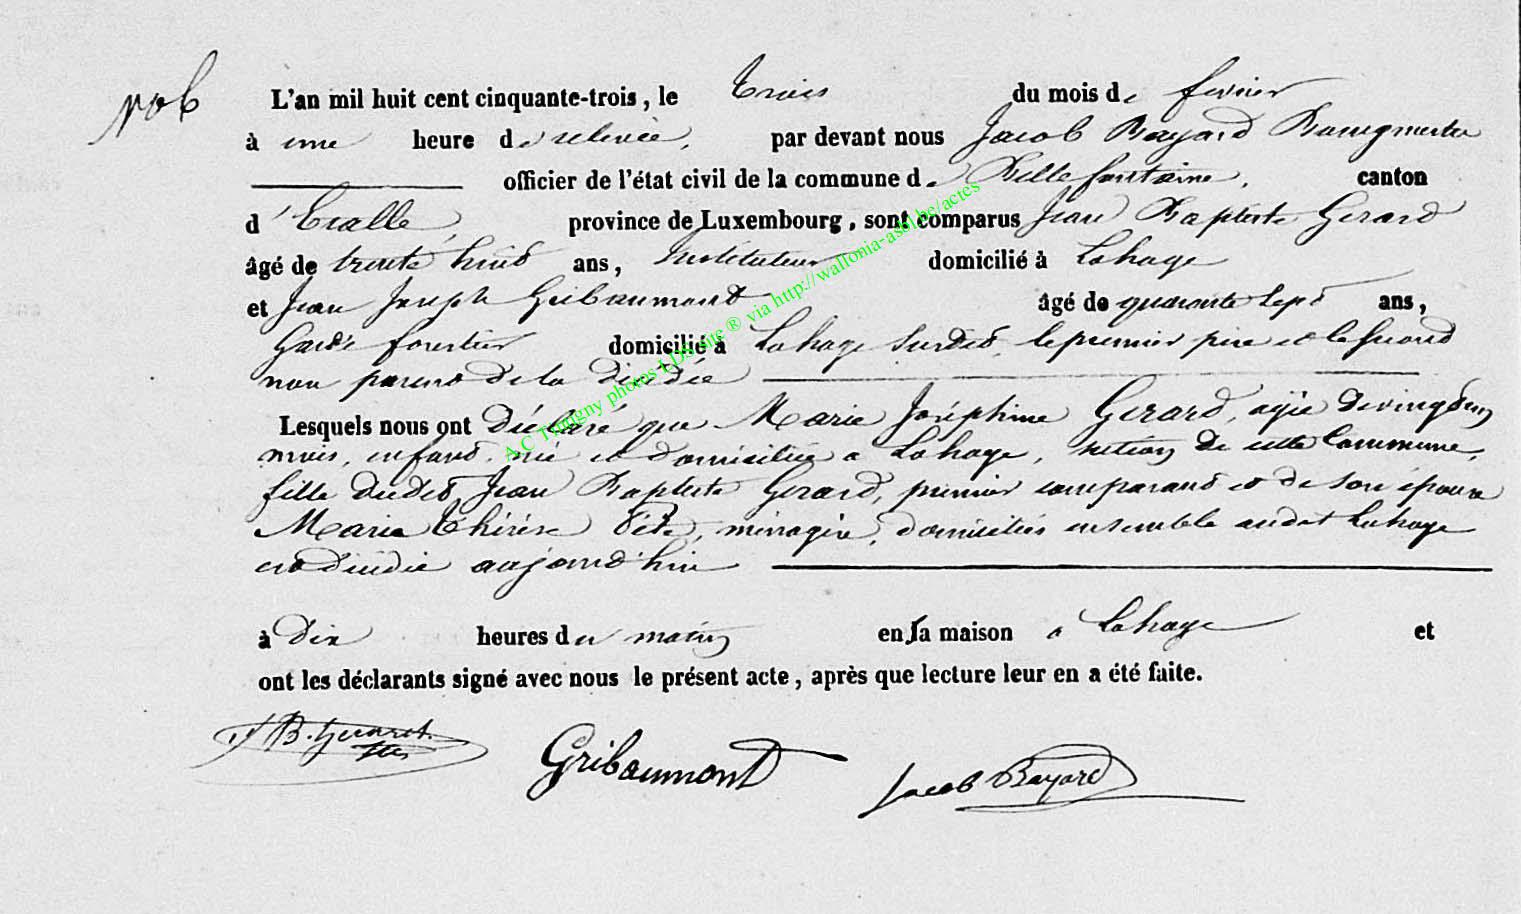 N° 6
L'an mil huit cent cinquante-trois, le trois du mois de fevrier
à une heure de relevée, par devant nous Jacob Bayard Bourgmestre
officier de l'état civil de la commune de Bellefontaine, canton
d'Etalle, province de Luxembourg, sont comparus Jean Baptiste Gerard
âgé de trente huit ans, instituteur domicilié à Lahage
et Jean Joseph Gribaumont âgé de quarante sept ans,
Garde forestier domicilié à Lahage susdit, le premier père et le second
non parent de la décédée
Lesquels nous ont déclaré que Marie Joséphine Gerard, agée de vingt deux
mois, enfant, née et domiciliée a Lahage, section de cette Commune,
fille dudit Jean Baptiste Gerard, premier comparant et de son épouse
Marie Thérèse ménagère, domiciliés ensemble audit Lahage
est décédée aujourd'hui
à Dix heures du matin en sa maison a Lahage et
ont les déclarants signé avec nous le présent acte, après que lecture leur en a été faite.
J B. Gerard
Gribaumont
Jacob Bayard
A C Tintigny photos LDS site ® via http://wallonia-asbl.be/actes